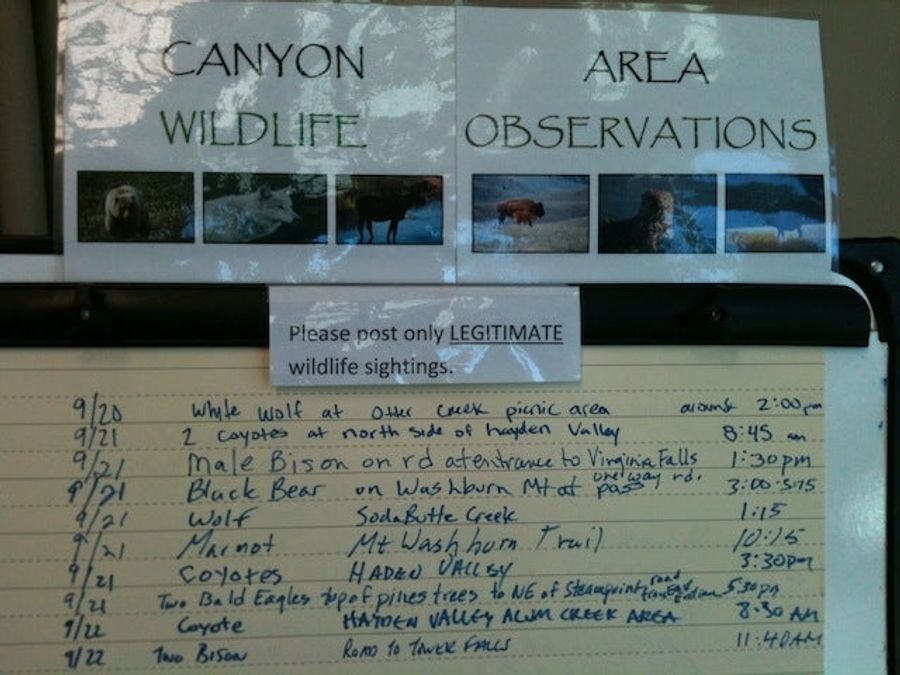 CANYON AREA
WILDLIFE OBSERVATIONS
Please post only LEGITIMATE
wildlife sightings.
9/20 White Wolf at Otter Creek picnic area around 2:00pm
9/21 2 Coyotes at north side of hayden Valley 8:45 am
9/21 Male Bison on rd at entrance to Virginia Falls 1:30pm
one way rd.
9/21 Black Bear on Washburn Mt at pass 3:00-3:15
9/21 Wolf Soda Butte Creek 1:15
9/21 Marmot Mt Washburn Trail 10:15
9/21 Coyotes HADEN VALLEY 3:30pm
9/21 Two Bald Eagles top of pines trees to NE of Steampoint road 5:30pm
9/22 Coyote HAYDEN VALLEY ALUM CREEK AREA 8:30 AM
9/22 Two Bison ROAD TO TOWER FALLS 11:40AM